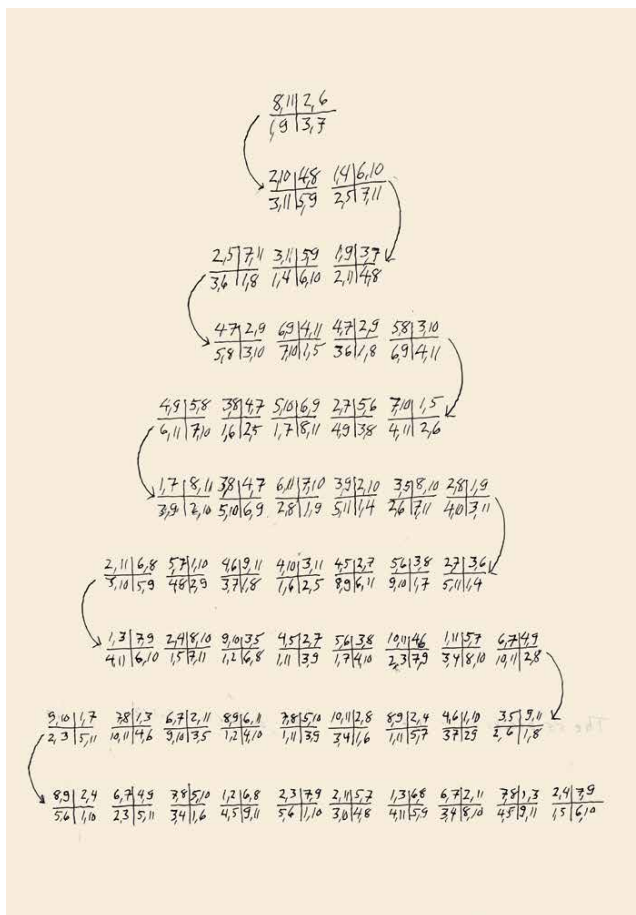 8,11|2,6
1,9|3,7
2,10|4,8 1,4|6,10
3,11|5,9 2,5|7,11
2,5|7,11 3,11|5,9 1,9|3,7
3,6|1,8 1,4|6,10 2,11|4,8
4,7|2,9 6,9|4,11 4,7|2,9 5,8|3,10
5,8|3,10 7,10|1,5 3,6|1,8 6,9|4,11
4,9|5,8 3,8|4,7 5,10|6,9 2,7|5,6 7,10|1,5
6,11|7,10 1,6|2,5 1,7|8,11 4,9|3,8 4,11|2,6
1,7|8,11 3,8|4,7 6,11|7,10 3,9|2,10 3,5|8,10 2,8|1,9
3,9|2,10 5,10|6,9 2,8|1,9 5,11|1,4 2,6|7,11 4,10|3,11
2,11|6,8 5,7|1,10 4,6|9,11 4,10|3,11 4,5|2,7 5,6|3,8 2,7|3,6
3,10|5,9 4,8|2,9 3,7|1,8 1,6|2,5 8,9|6,11 9,10|1,7 5,11|1,4
1,3|7,9 2,4|8,10 9,10|3,5 4,5|2,7 5,6|3,8 10,11|4,6 1,11|5,7 6,7|4,9
4,11|6,10 1,5|7,11 1,2|6,8 1,11|3,9 1,7|4,10 2,3|7,9 3,4|8,10 10,11|2,8
9,10|1,7 7,8|1,3 6,7|2,11 8,9|6,11 7,8|5,10 10,11|2,8 8,9|2,4 4,6|1,10 3,5|9,11
2,3|5,11 10,11|4,6 9,10|3,5 1,2|4,10 1,11|3,9 3,4|1,6 1,11|5,7 3,7|2,9 2,6|1,8
8,9|2,4 6,7|4,9 7,8|5,10 1,2|6,8 2,3|7,9 2,11|5,7 1,3|6,8 6,7|2,11 7,8|1,3 2,4|7,9
5,6|1,10 2,3|5,11 3,4|1,6 4,5|9,11 5,6|1,10 3,10|4,8 4,11|5,9 3,4|8,10 4,5|9,11 1,5|6,10